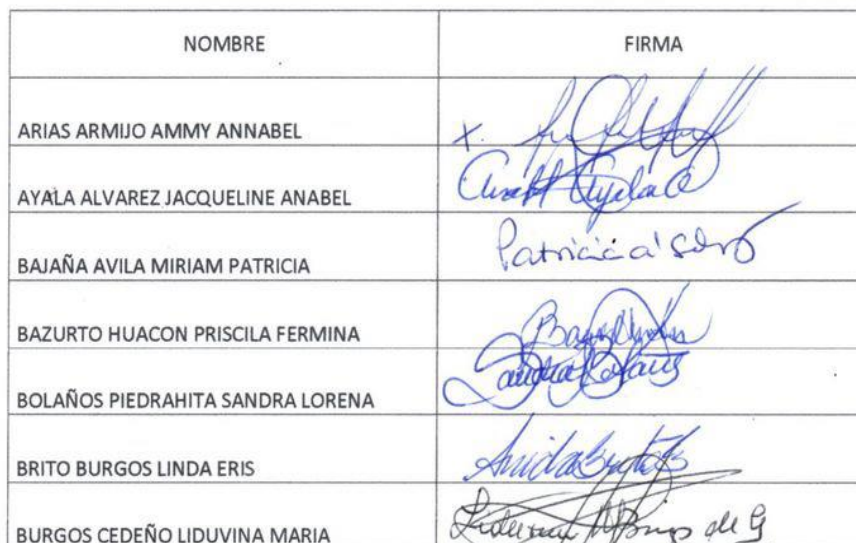 NOMBRE FIRMA
ARIAS ARMIJO AMMY ANNABEL X.
AYALA ALVAREZ JACQUELINE ANABEL
BAJAÑA AVILA MIRIAM PATRICIA Patricia
BAZURTO HUACON PRISCILA FERMINA
BOLAÑOS PIEDRAHITA SANDRA LORENA Sandra Bolaños
BRITO BURGOS LINDA ERIS
BURGOS CEDEÑO LIDUVINA MARIA de G